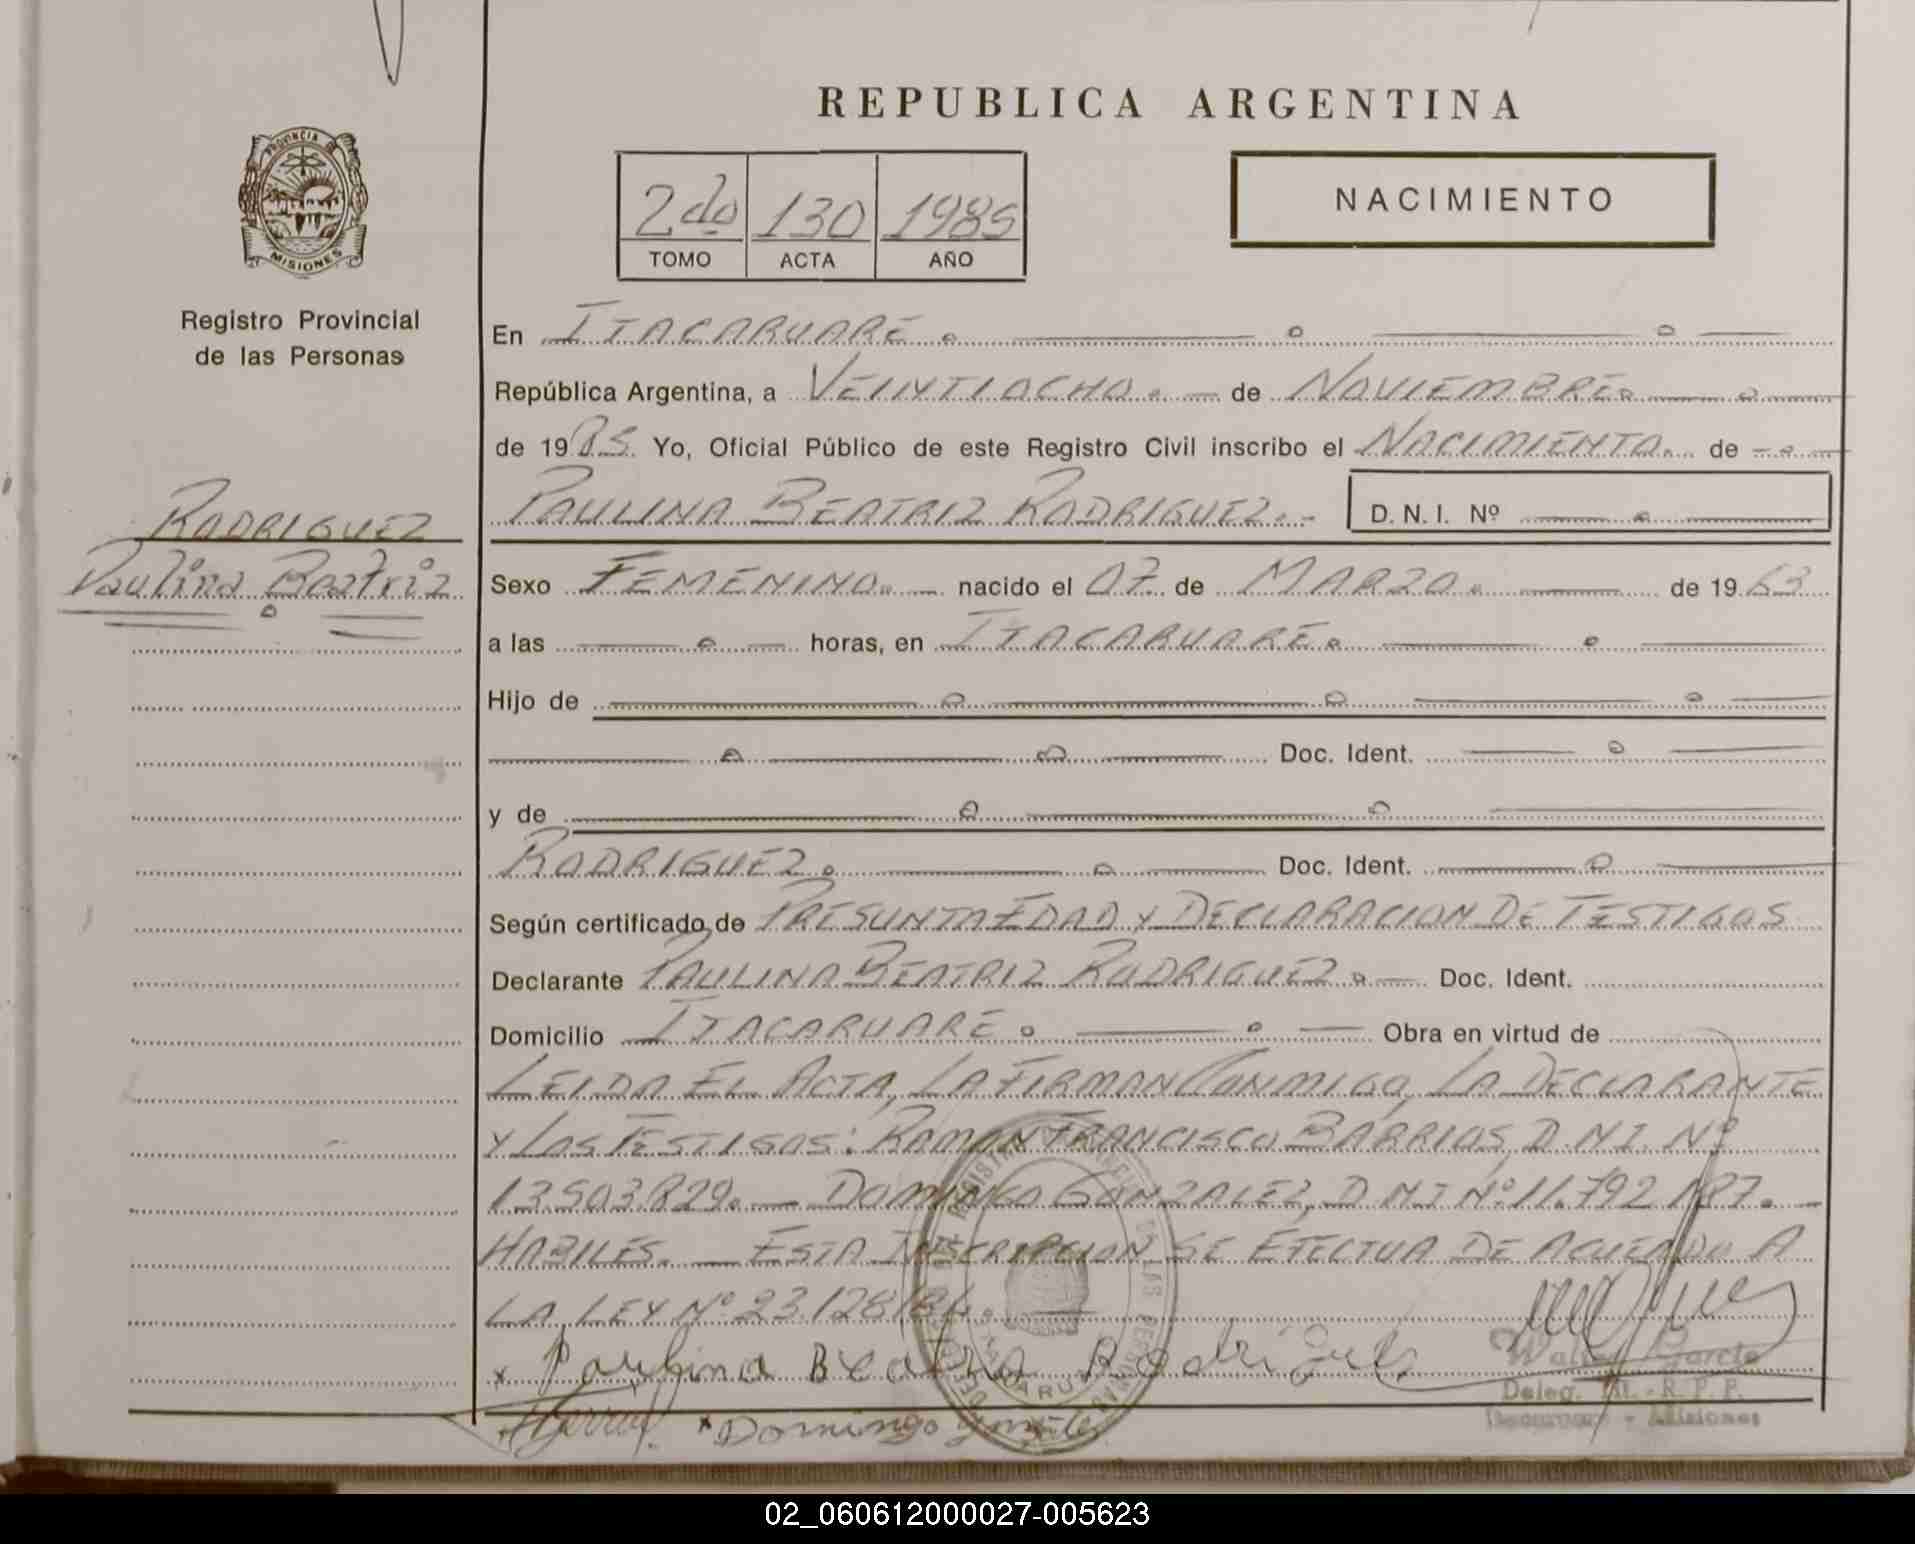 REPUBLICA ARGENTINA
PROVINCIA DE
MISIONES
Registro Provincial
de las Personas
2do 130 1985
TOMO ACTA AÑO
NACIMIENTO
En ITACARUARE.
República Argentina, a VEINTIOCHO. de NOVIEMBRE.
de 1985. Yo, Oficial Público de este Registro Civil inscribo el NACIMIENTO. de
PAULINA BEATRIZ RODRIGUEZ.- D. N. I. Nº
RODRIGUEZ
Paulina Beatriz
Sexo FEMENINO. nacido el 07. de MARZO. de 1963
a las horas, en ITACARUARE.
Hijo de
Doc. Ident.
y de
RODRIGUEZ. Doc. Ident.
Según certificado de PRESUNTA EDAD Y DECLARACION DE TESTIGOS
Declarante PAULINA BEATRIZ RODRIGUEZ. Doc. Ident.
Domicilio ITACARUARE. Obra en virtud de
LEIDA EL ACTA, LA FIRMAN CONMIGO, LA DECLARANTE
Y LOS TESTIGOS: RAMON FRANCISCO BARRIOS, D.N.I. Nº
13.503.829. — DOMINGO GONZALEZ, D.N.I Nº 11.792.187. —
HABILES. — ESTA INSCRIPCION SE EFECTUA DE ACUERDO A
LA LEY Nº 23.128/84.
x Paulina Beatriz Rodriguez
Walter Garcia
Deleg. Tit. - R. P. P.
Itacaruare - Misiones
x Domingo
02_060612000027-005623